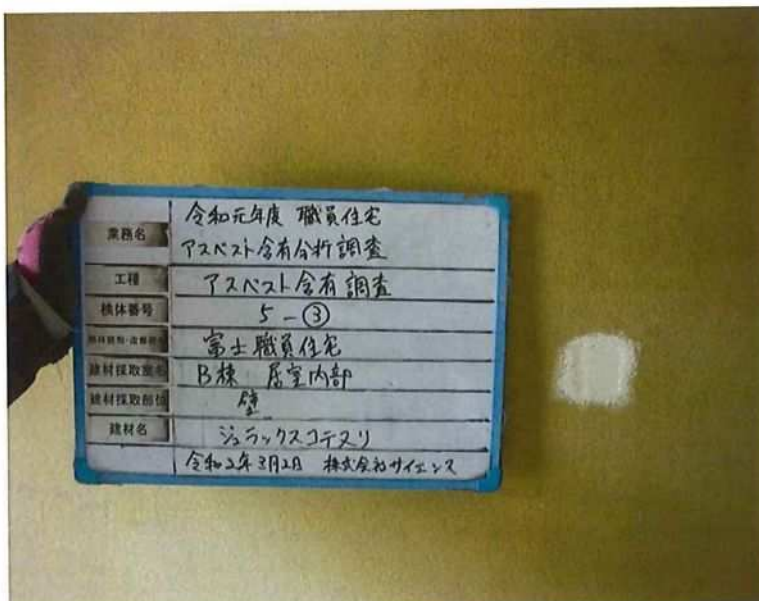 業務名 令和元年度 職員住宅
アスベスト含有分析調査
工種 アスベスト含有調査
検体番号 5-③
富士職員住宅
建材採取室名 B棟 居室内部
建材採取部位 壁
建材名 ジュラックスコテヌリ
令和2年3月2日 株式会社サイエンス